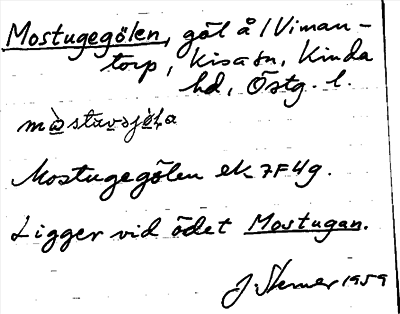 Mostugegölen, göl å / Viman-
torp, Kisa sn, Kinda
hd, Östg. l.
Mostugegölen ek 7F4g.
Ligger vid ödet Mostugan.
J. Sterner 1959